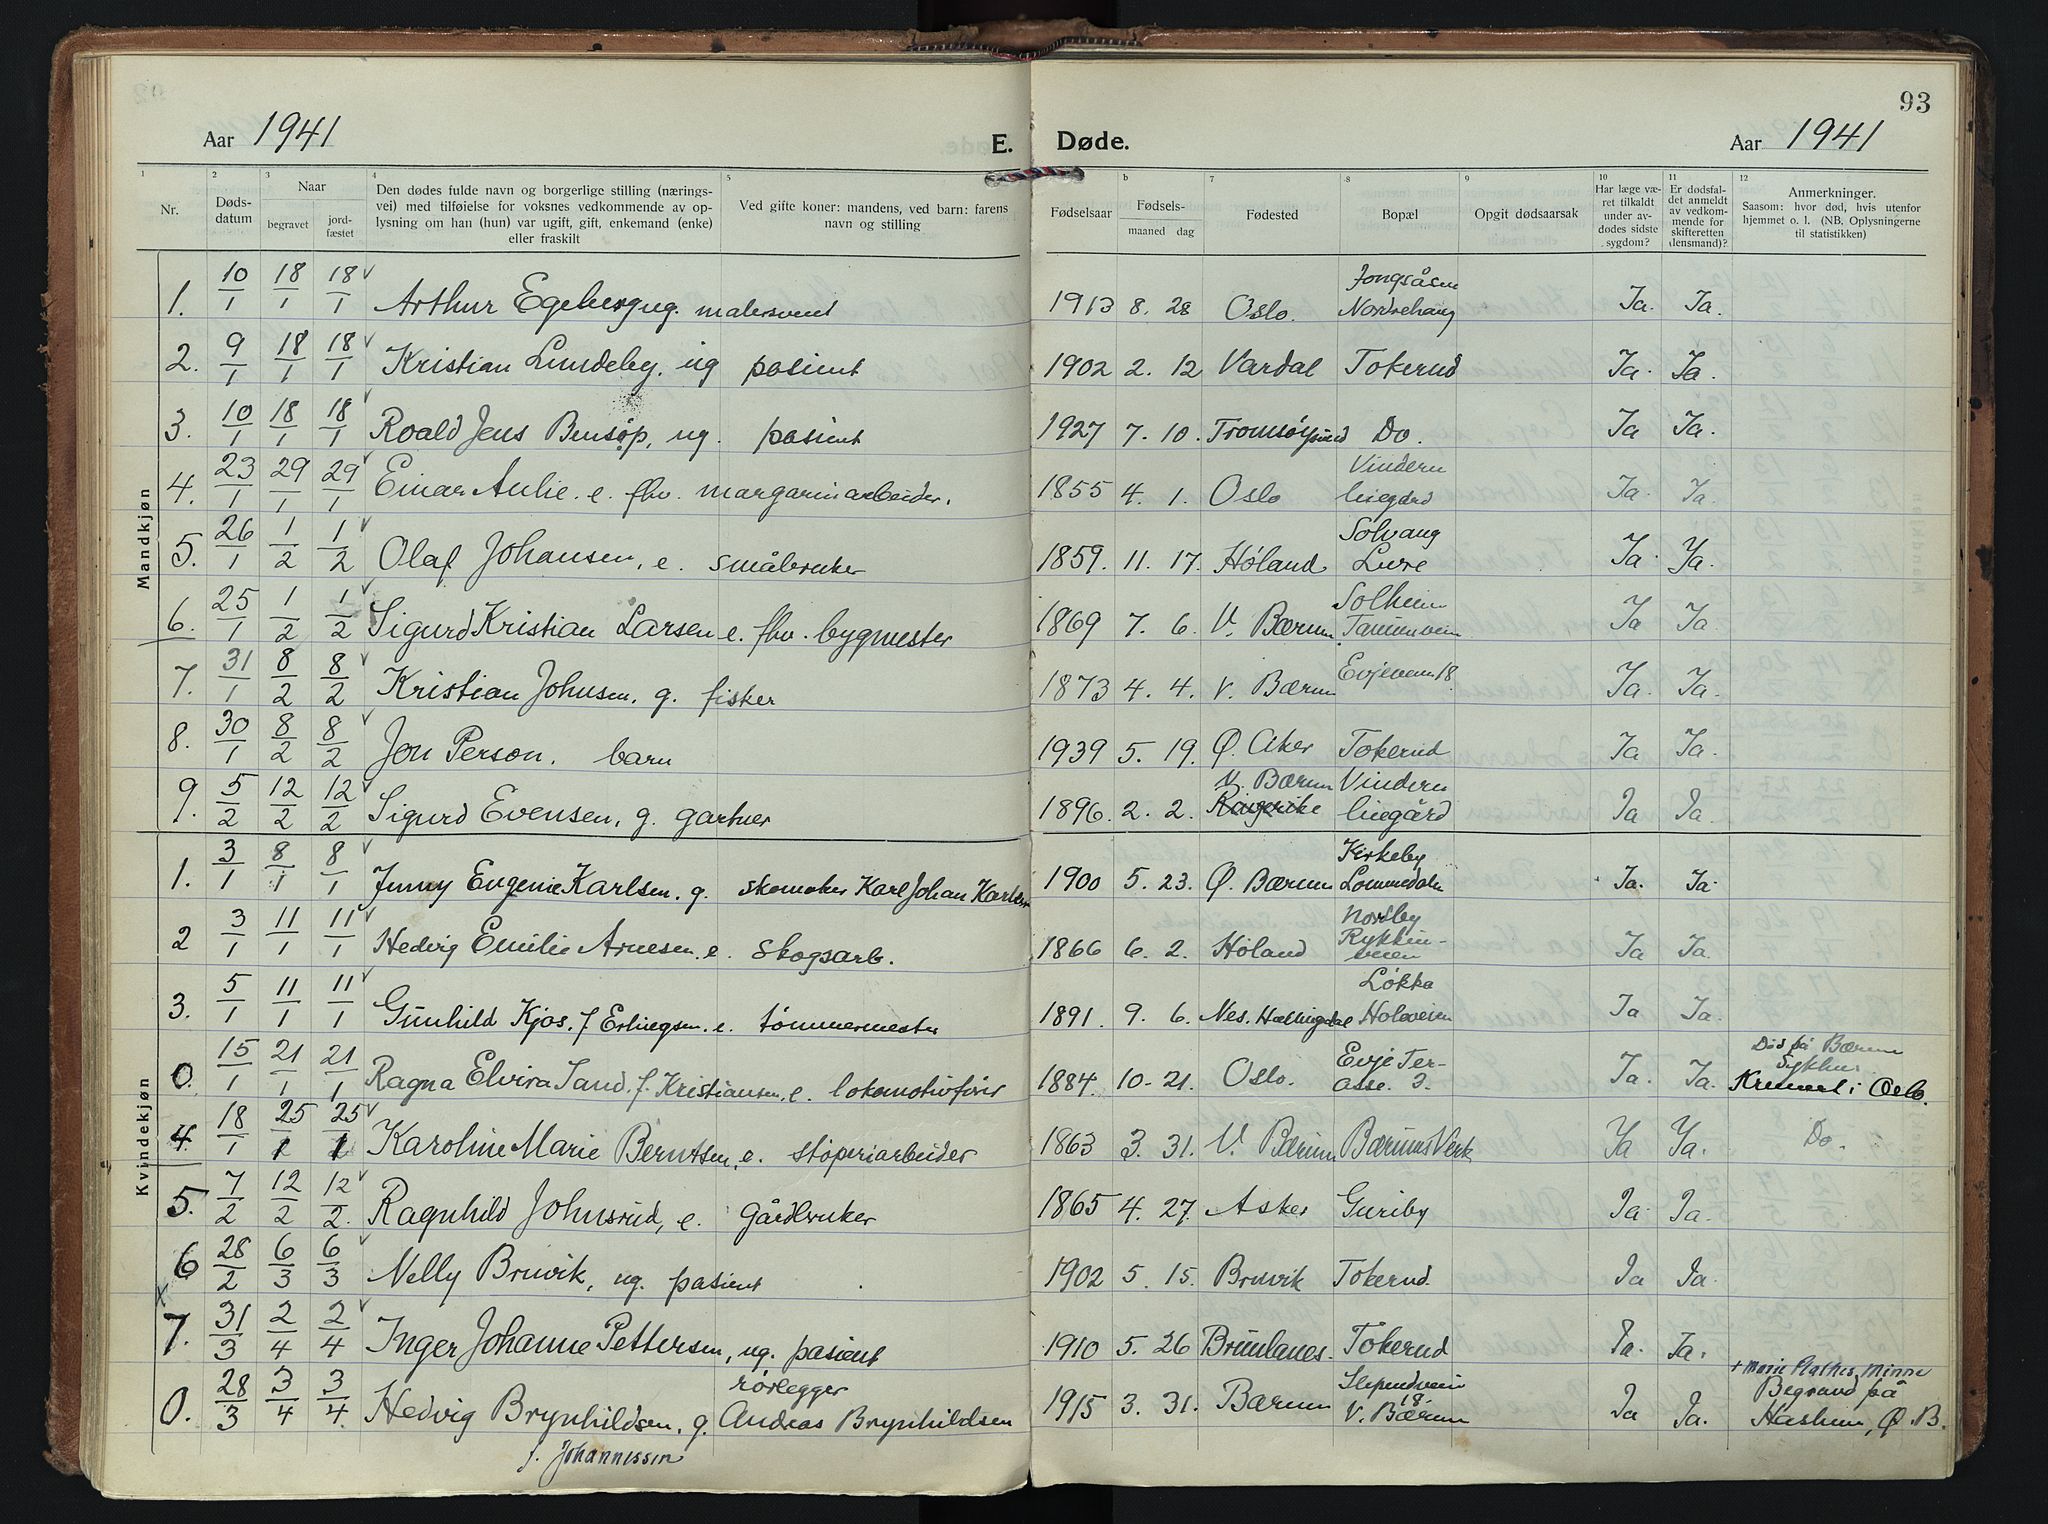 93
Aar 1941 E. Døde. Aar 1941
1 2 3 4 5 b 7 8 9 10 11 12
Nr. Dødsdatum Naar begravet jordfæstet
Den dødes fulde navn og borgerlige stilling (næringsvei) med tilføielse for voksnes vedkommende av oplysning om han (hun) var ugift, gift, enkemand (enke) eller fraskilt
Ved gifte koner: mandens, ved barn: farens navn og stilling
Fødselsaar Fødselsmaaned dag Fødested Bopæl Opgit dødsaarsak
Har læge været tilkaldt under avdødes sidste sygdom?
Er dødsfaldet anmeldt av vedkommende for skifteretten (lensmand)?
Anmerkninger.
Saasom: hvor død, hvis utenfor hjemmet o. l. (NB. Oplysningerne til statistikken)
Mandkjøn
1. 10/1 18/1 18/1 Arthur Egeberg ug. malersvent 1913 8. 28 Oslo. Jongsåsen Nordrehaug Ja. Ja.
2. 9/1 18/1 18/1 Kristian Lundeby, ug pasient 1902 2. 12 Vardal Tokerud Ja. Ja.
3. 10/1 18/1 18/1 Roald Jens Bensøp, ug. pasient 1927 7. 10. Tromsøysund Do. Ja Ja.
4. 23/1 29/1 29/1 Einar Aulie. e. fhv. margarinarbeider. 1855 4. 1. Oslo Vindern liegård Ja Ja.
5. 26/1 1/2 1/2 Olaf Johansen, e. småbruker 1859. 11. 17. Høland Solvang Ja. Ja.
6. 25/1 1/2 1/2 Sigurd Kristian Larsen e. fhv. bygmester 1869 7. 6. V. Bærum Solheim Tanumveien Ja Ja
7. 31/1 8/2 8/2 Kristian Johnsen, g. fisker 1873 4. 4. V. Bærum Evjeveien 18 Ja Ja.
8. 30/1 8/2 8/2 Jon Person, barn 1939 5. 19. Ø. Aker Tokerud Ja Ja.
9. 5/2 12/2 12/2 Sigurd Evensen, g. gartner 1896. 2. 2. V. Bærum Ringerike Vindern liegård Ja Ja.
Kvindekjøn
1. 3/1 8/1 8/1 Jenny Eugenie Karlsen. g. skomaker Karl Johan Karlsen 1900 5. 23. Ø. Bærum Kirkeby Lommedalen Ja. Ja.
2 3/1 11/1 11/1 Hedvig Emilie Arnesen. e. skogsarb. 1866 6. 2. Høland Norsby Rykkinveien Ja Ja.
3. 5/1 11/1 11/1 Gunhild Kjos. f Erlingsen. e. tømmermester 1891. 9. 6. Nes. Hallingdal Løkka Holoveien Ja Ja.
0. 15/1 21/1 21/1 Ragna Elvira Sand. f. Kristiansen, e. lokomotivfører 1884. 10. 21. Oslo. Evje Terasse. 2. Ja. Ja. Død på Bærum Sykehus Kremert i Oslo.
4. 18/1 25/1 25/1 Karoline Marie Berntsen, e. støperiarbeider 1863 3. 31. V. Bærum Bærums Verk Ja Ja. Do.
5. 7/2 12/2 12/2. Ragnhild Johnsrud, e. gårdbruker 1865 4. 27. Asker Guriby Ja. Ja.
6 28/2 6/3 6/3 Nelly Bruvik, ug. pasient 1902 5. 15. Bruvik Tokerud. Ja Ja.
x 7. 31/3 2/4 2/4 Inger Johanne Pettersen, ug. pasient 1910 5. 26 Brunlanes. Tokerud Ja. Ja.
0. 28/3 3/4 3/4. Hedvig Brynhildsen, g. f. Johannessen rørlegger Andreas Brynhildsen 1915 3. 31. Bærum Slependveien 18. V. Bærum Ja Ja. + Marie Plathes Minne Begravd på Haslum, Ø. B.